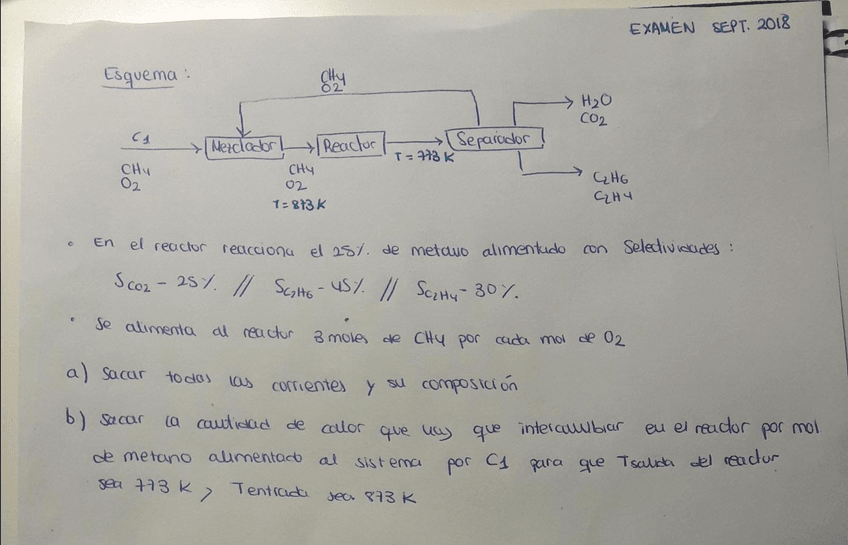 EXAMEN SEPT. 2018
Esquema :
CH4
O2
C1
CH4
O2
Mezclador
CH4
O2
T = 873 K
Reactor
T = 773 K
Separador
H2O
CO2
C2H6
C2H4
• En el reactor reacciona el 25%. de metano alimentado con Selectividades :
SCO2 - 25 %. // SC2H6 - 45 %. // SC2H4 - 30 %.
• Se alimenta al reactor 3 moles de CH4 por cada mol de O2
a) Sacar todas las corrientes y su composición
b) Sacar la cantidad de calor que hay que intercambiar en el reactor por mol
de metano alimentado al sistema por C1 para que Tsalida del reactor
sea 773 K, Tentrada sea 873 K